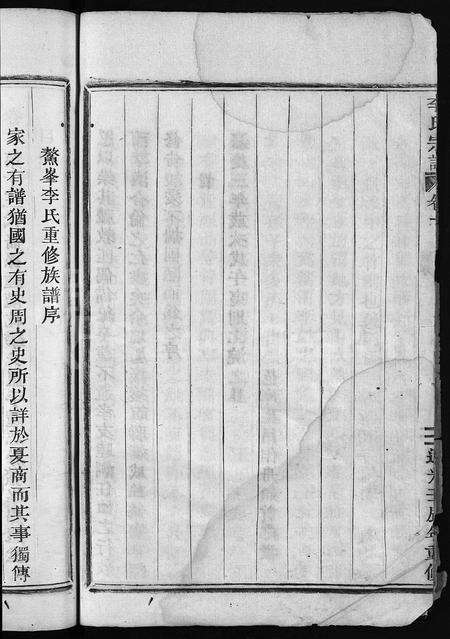 李氏宗譜
卷一
道光壬辰年重修
鰲峯李氏重修族譜序
家之有譜猶國之有史周之史所以詳於夏商而其事獨傳